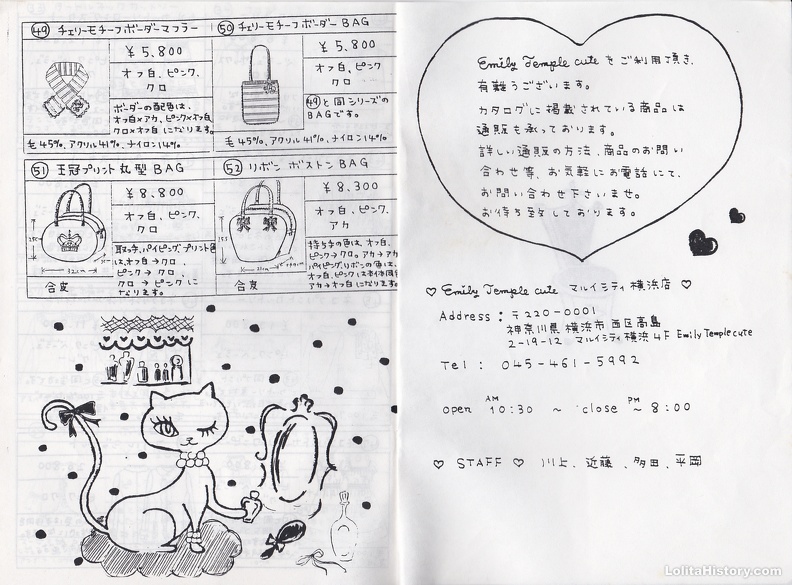 49 チェリーモチーフボーダーマフラー
¥5,800
オフ白、ピンク、
クロ
ボーダーの配色は、
オフ白×アカ、ピンク×オフ白
クロ×オフ白になります。
毛45%、アクリル41%、ナイロン14%
50 チェリーモチーフボーダーBAG
¥5,800
オフ白、ピンク
クロ
49と同シリーズの
BAGです。
毛45%、アクリル41%、ナイロン14%
51 王冠プリント丸型BAG
¥8,800
オフ白、ピンク、
クロ
取っ手、パイピング、プリント色
は、オフ白→クロ、
ピンク→クロ、
クロ→ピンクに
なります。
32cm
合皮
52 リボンボストンBAG
¥8,300
オフ白、ピンク、
アカ
持ち手の色は、オフ白、
ピンク→クロ。アカ→アカ
パイピング、リボンの色は、
オフ白、ピンクは本体同色
アカ→オフ白になります。
合皮
Emily Temple cuteをご利用頂き、
有難うございます。
カタログに掲載されている商品は
通販も承っております。
詳しい通販の方法、商品のお問い
合わせ等、お気軽にお電話にて、
お問い合わせ下さいませ。
お待ち致しております。
♡ Emily Temple cute マルイシティ横浜店 ♡
Address : 〒220-0001
神奈川県横浜市西区高島
2-19-12 マルイシティ横浜4F Emily Temple cute
Tel : 045-461-5992
open AM 10:30 ~ close PM ~ 8:00
♡ STAFF ♡ 川上、近藤、多田、平岡
LolitaHistory.com